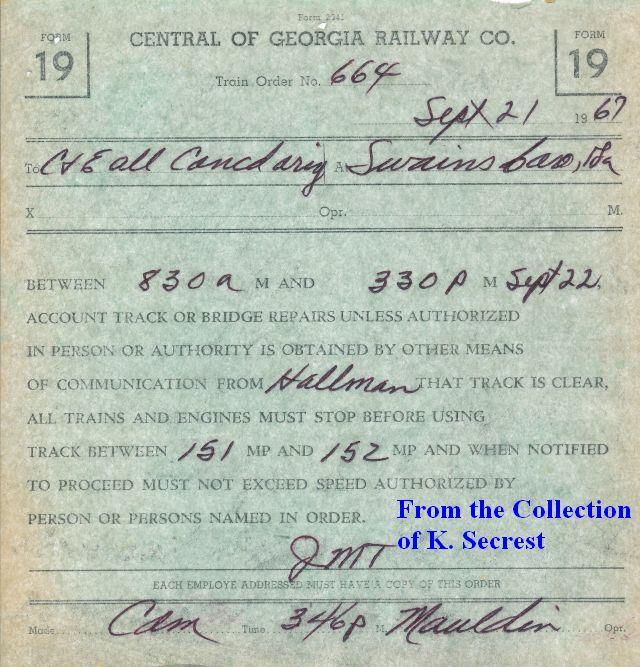 Form 2341
FORM 19 CENTRAL OF GEORGIA RAILWAY CO. FORM 19
Train Order No. 664
Sept 21 1967
To C&E all Concd A Swainsboro, Ga
X Opr. M.
BETWEEN 830a M AND 330p M Sept 22,
ACCOUNT TRACK OR BRIDGE REPAIRS UNLESS AUTHORIZED
IN PERSON OR AUTHORITY IS OBTAINED BY OTHER MEANS
OF COMMUNICATION FROM Hallman THAT TRACK IS CLEAR,
ALL TRAINS AND ENGINES MUST STOP BEFORE USING
TRACK BETWEEN 151 MP AND 152 MP AND WHEN NOTIFIED
TO PROCEED MUST NOT EXCEED SPEED AUTHORIZED BY
PERSON OR PERSONS NAMED IN ORDER.
From the Collection
of K. Secrest
JMT
EACH EMPLOYE ADDRESSED MUST HAVE A COPY OF THIS ORDER
Made Com Time 346p M Mauldin Opr.